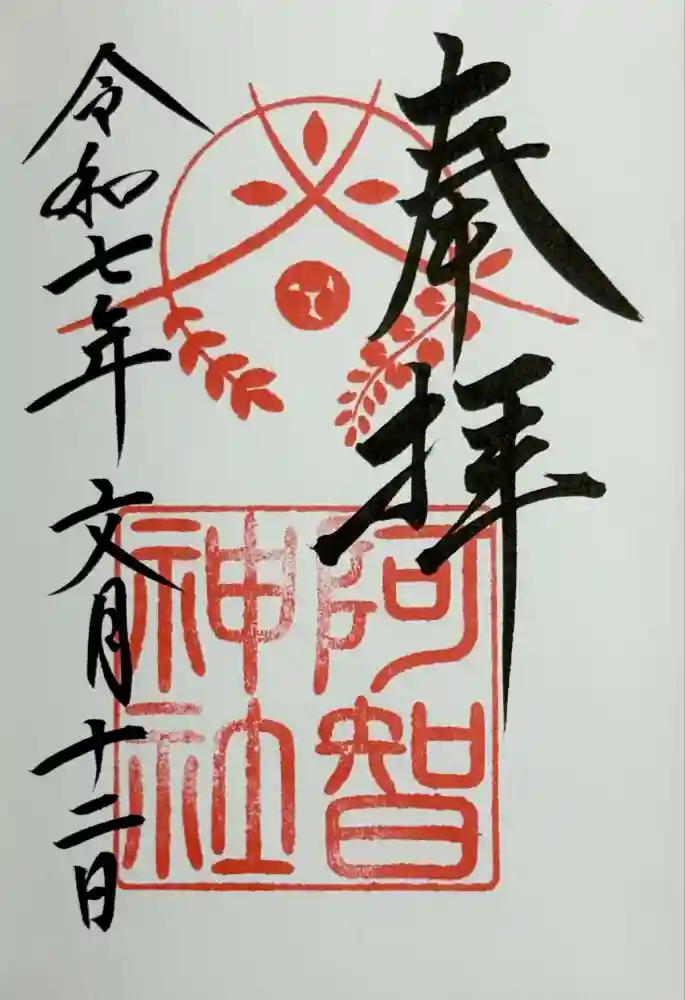 奉拝
阿智
神社
令和七年 文月 十二日